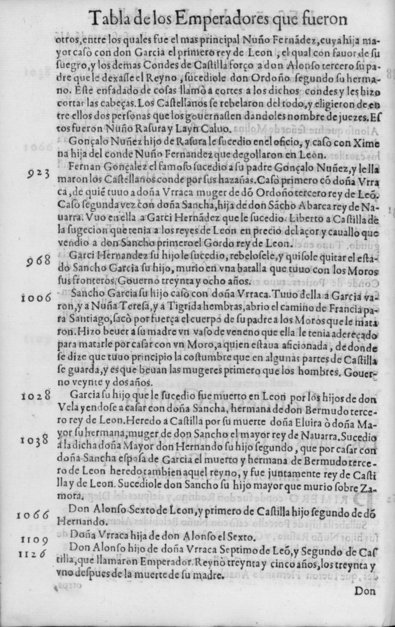 Tabla de los Emperadores que fueron
otros, entre los quales fue el mas principal Nuño Fernãdez, cuya hija ma
yor casò con don Garcia el primero rey de Leon, el qual con fauor de su
suegro, y los demas Condes de Castilla forço a don Alonso tercero su pa
dre que le dexasse el Reyno, sucediole don Ordoño segundo su herma-
no. Este enfadado de cosas llamò a cortes a los dichos condes y les hizo
cortar las cabeças. Los Castellanos se rebelaron del todo, y eligieron de en
tre ellos dos personas que los gouernassen dandoles nombre de juezes. Es
tos fueron Nuño Rasura y Layn Caluo.
Gonçalo Nuñez hijo de Rasura le sucedio en el oficio, y casò con Xime
na hija del conde Nuño Fernandez que degollaron en Leon.
923 Fernan Gonçalez el famoso sucedio a su padre Gonçalo Nuñez, y le lla
maron los Castellanos conde por sus hazañas. Casò primero cõ doña Vrra
ca, de quiẽ tuuo a doña Vrraca muger de dõ Ordoño tercero rey de Leõ.
Casò segunda vez con doña Sancha, hija de don Sãcho Abarca rey de Na-
uarra. Vuo en ella a Garci Hernãdez que le sucedio. Liberto a Castilla de
la sugecion que tenia a los reyes de Leon en precio del açor y cauallo que
vendio a don Sancho primero el Gordo rey de Leon.
968 Garci Hernandez su hijo le sucedio, rebelosele, y quisole quitar el esta-
do Sancho Garcia su hijo, murio en vna batalla que tuuo con los Moros
sus fronteros. Gouerno treynta y ocho años.
1006 Sancho Garcia su hijo casò con doña Vrraca. Tuuo della a Garcia va-
ron, y a Nuña Teresa, y a Tigrida hembras, abrio el camino de Francia pa
ra Santiago, sacò por fuerça el cuerpo de su padre a los Moros que le mata
ron. Hizo beuer a su madre vn vaso de veneno que ella le tenia adereçado
para matarle por casar con vn Moro, a quien estaua aficionada, de donde
se dize que tuuo principio la costumbre que en algunas partes de Castilla
se guarda, y es que beuan las mugeres primero que los hombres. Gouer-
no veynte y dos años.
1028 Garcia su hijo que le sucedio fue muerto en Leon por los hijos de don
Vela yendose a casar con doña Sancha, hermana de don Bermudo terce-
ro rey de Leon. Heredo a Castilla por su muerte doña Eluira ò doña Ma-
yor su hermana, muger de don Sancho el mayor rey de Nauarra. Sucedio
1038 a la dicha doña Mayor don Hernando su hijo segundo, que por casar con
doña Sancha esposa de Garcia el muerto y hermana de Bermudo terce-
ro de Leon heredo tambien aquel reyno, y fue juntamente rey de Casti
lla y de Leon. Sucediole don Sancho su hijo mayor que murio sobre Za-
mora.
1066 Don Alonso Sexto de Leon, y primero de Castilla hijo segundo de dõ
Hernando.
1109 Doña Vrraca hija de don Alonso el Sexto.
1126 Don Alonso hijo de doña Vrraca Septimo de Leõ, y Segundo de Cas
tilla, que llamaron Emperador. Reynò treynta y cinco años, los treynta y
vno despues de la muerte de su madre.
Don